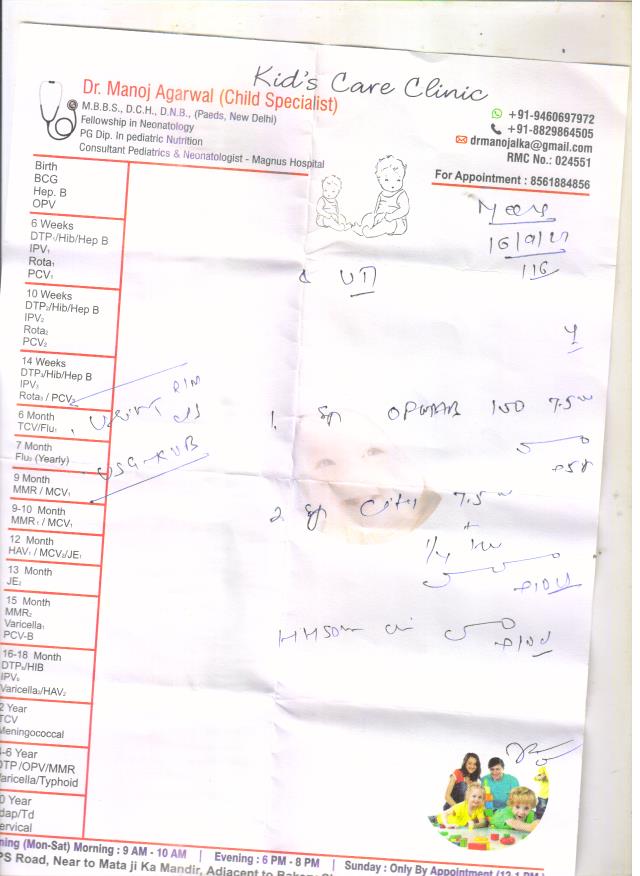 Kid's Care Clinic
Dr. Manoj Agarwal (Child Specialist)
M.B.B.S., D.C.H., D.N.B., (Paeds, New Delhi)
Fellowship in Neonatology
PG Dip. In pediatric Nutrition
Consultant Pediatrics & Neonatologist - Magnus Hospital
+91-9460697972
+91-8829864505
drmanojalka@gmail.com
RMC No.: 024551
For Appointment : 8561884856
Birth
BCG
Hep. B
OPV
6 Weeks
DTP₁/Hib/Hep B
IPV₁
Rota₁
PCV₁
10 Weeks
DTP₂/Hib/Hep B
IPV₂
Rota₂
PCV₂
14 Weeks
DTP₃/Hib/Hep B
IPV₃
Rota₃ / PCV₃
6 Month
TCV/Flu₁
7 Month
Flu₂ (Yearly)
9 Month
MMR / MCV₁
9-10 Month
MMR₁ / MCV₁
12 Month
HAV₁ / MCV₂/JE₁
13 Month
JE₂
15 Month
MMR₂
Varicella₁
PCV-B
16-18 Month
DTP₄/HIB
IPV₄
Varicella₂/HAV₂
2 Year
TCV
Meningococcal
4-6 Year
DTP/OPV/MMR
Varicella/Typhoid
10 Year
Tdap/Td
Cervical
116
UTI
R/M
C/S
USG-KUB
1. Syp 100 7.5
2. Syp 7.5
+
1/4
ning (Mon-Sat) Morning : 9 AM - 10 AM | Evening : 6 PM - 8 PM | Sunday : Only By Appointment
PS Road, Near to Mata ji Ka Mandir, Adjacent to